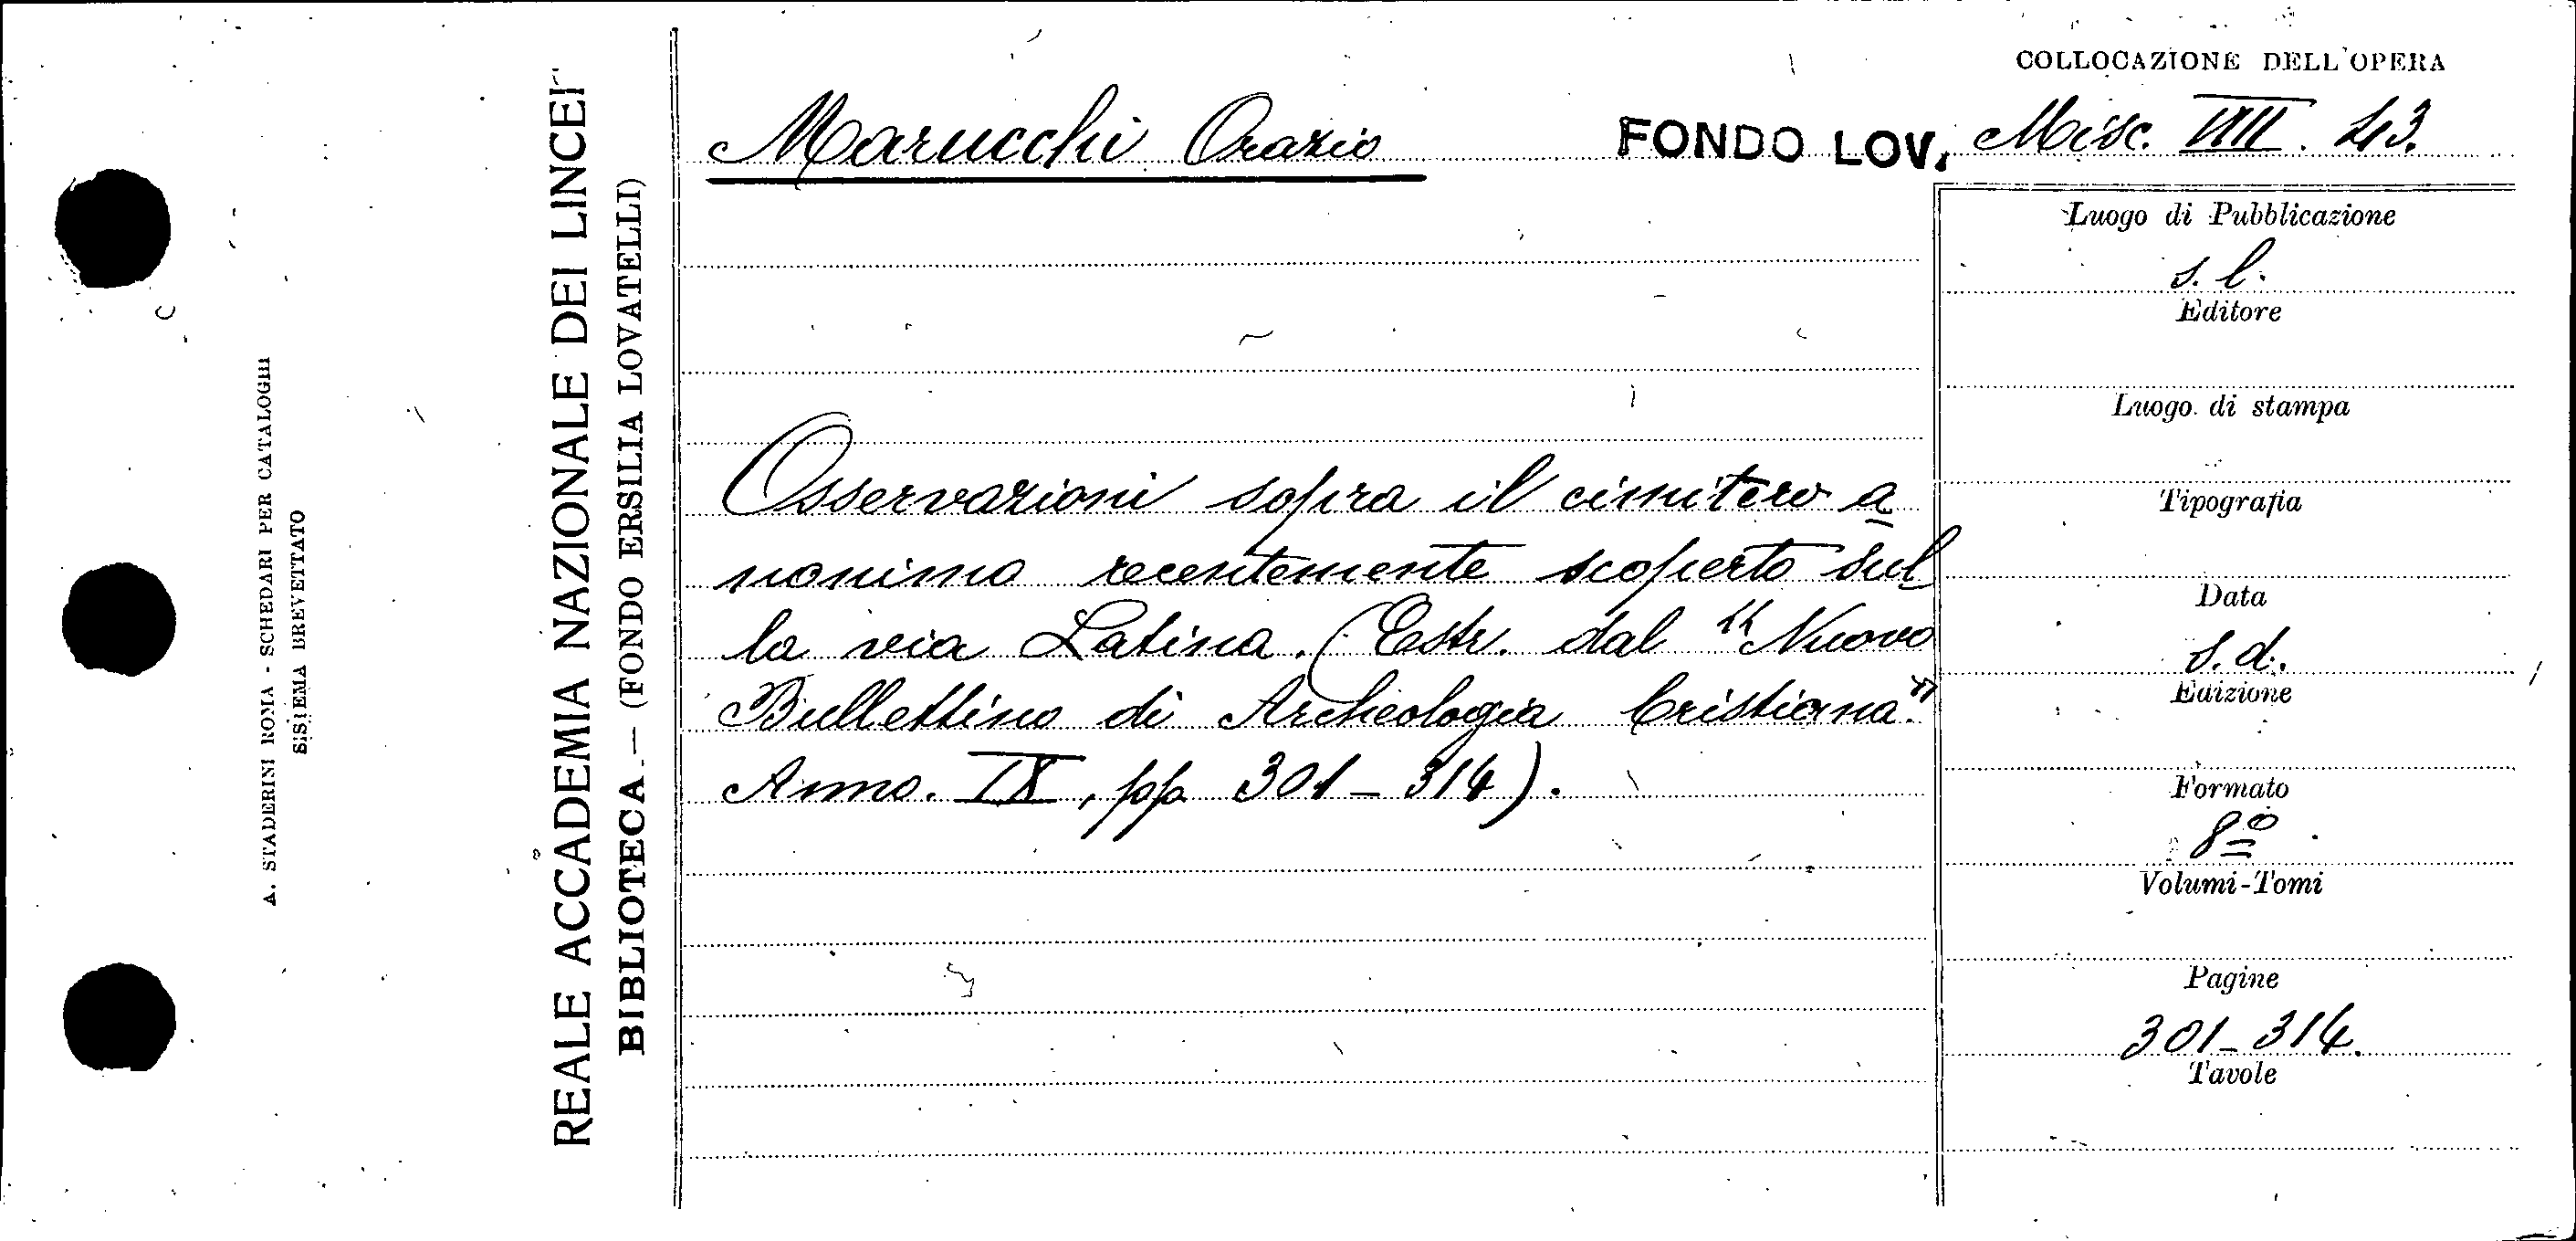 A. STADERINI ROMA - SCHEDARI PER CATALOGHI
SISTEMA BREVETTATO
REALE ACCADEMIA NAZIONALE DEI LINCEI
BIBLIOTECA — (FONDO ERSILIA LOVATELLI)
COLLOCAZIONE DELL'OPERA
Marucchi Orazio FONDO LOV. Misc. VIII. 43.
Osservazioni sopra il cimitero a
nonimo recentemente scoperto sul
la via Latina. (Estr. dal "Nuovo
Bullettino di Archeologia Cristiana"
Anno. IX, pp. 301-314).
Luogo di Pubblicazione
s. l.
Editore
Luogo di stampa
Tipografia
Data
s. d.
Edizione
Formato
8º
Volumi-Tomi
Pagine
301-314.
Tavole